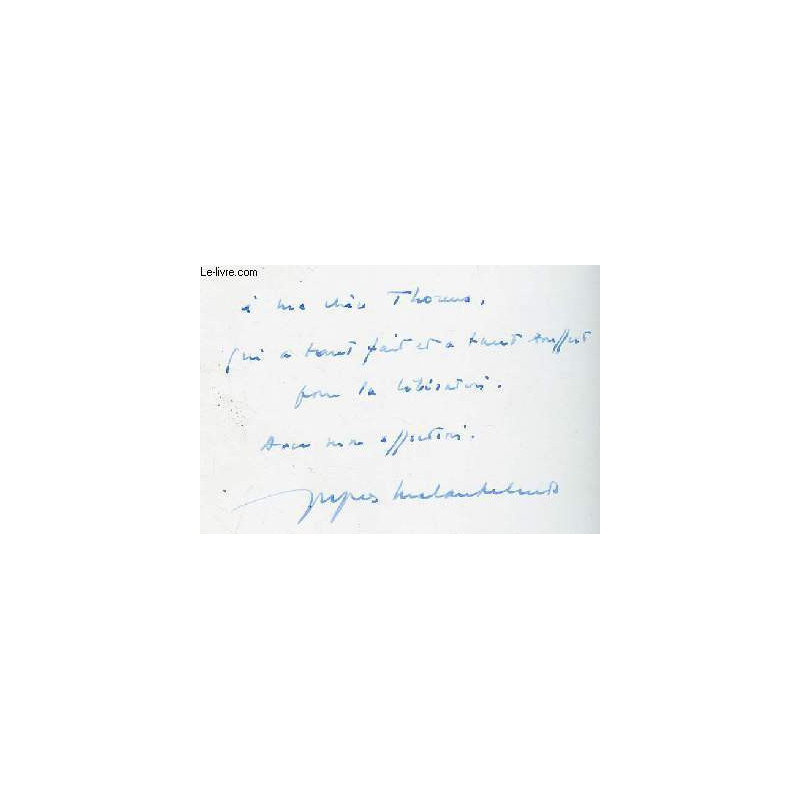 Le-livre.com
à ma chère Thorens,
qui a tant fait et a tant souffert
pour la libération.
Avec mon affection.
Jacques